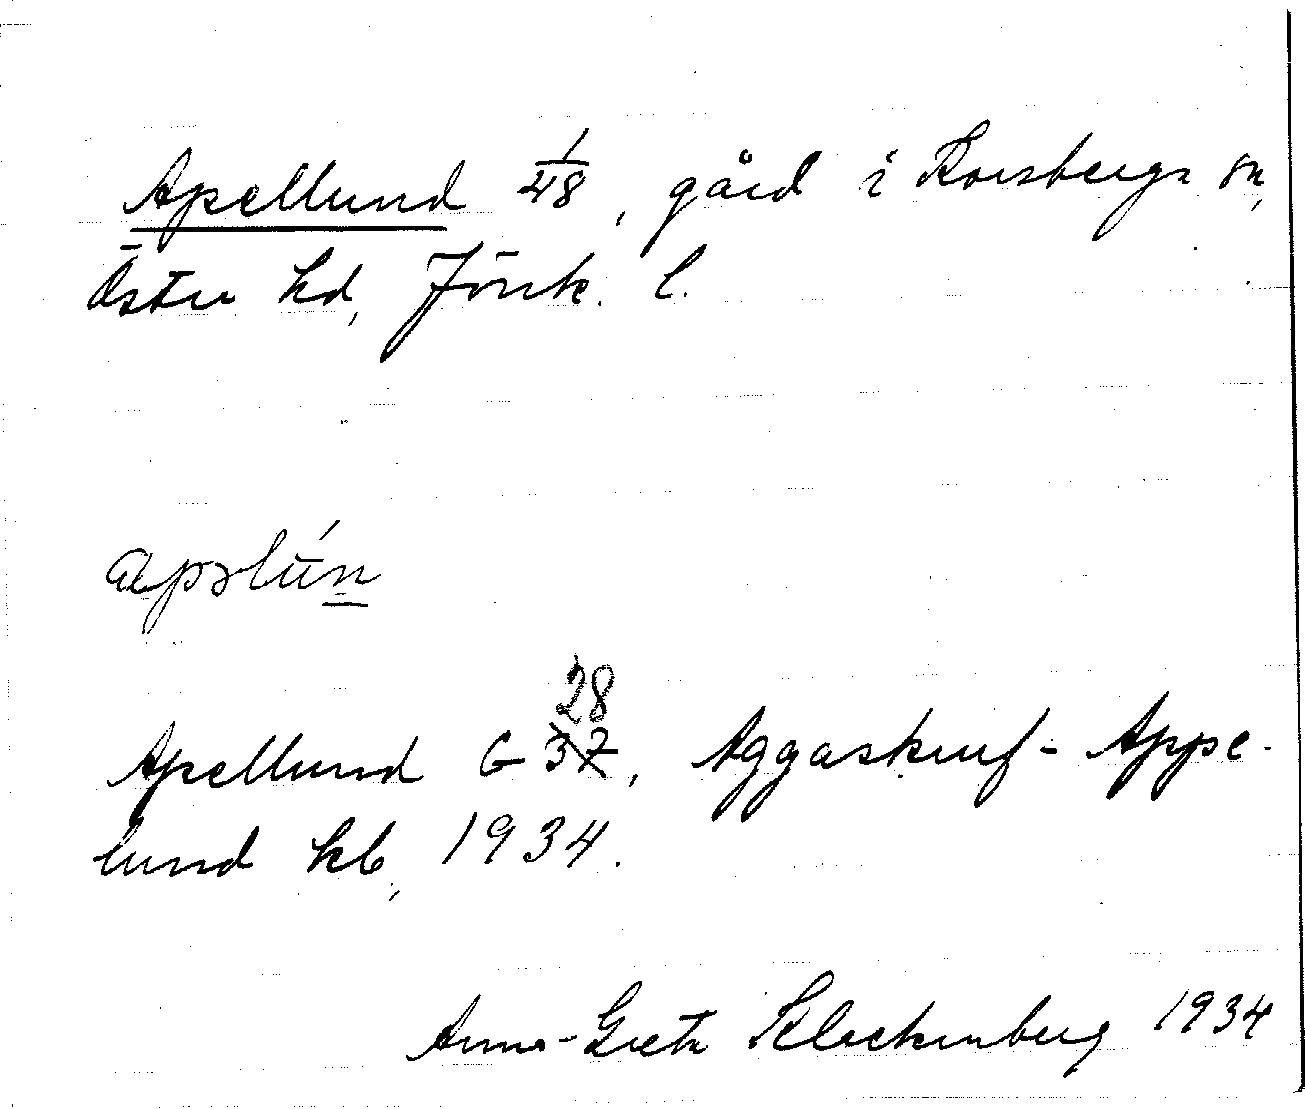 Apellund 1/48, gård i Korsberga sn,
Östra hd, Jönk. l.
apəlún
Apellund G 28 37, Aggaskruf-Appe-
lund kb, 1934.
Anna-Greta Klockenberg 1934